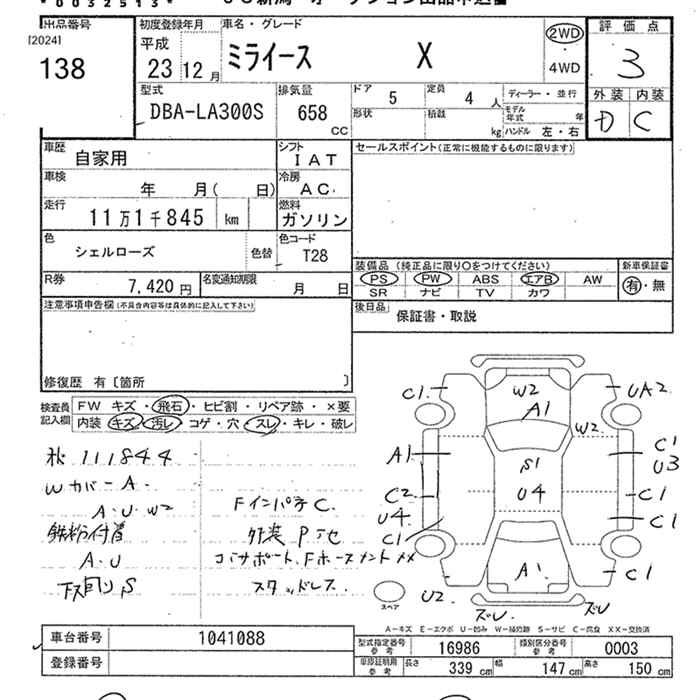 *0032513*
出品番号
[2024]
138
初度登録年月
平成
23 12 月
車名・グレード
ミライース X
2WD
4WD
評価点
3
外装 内装
D C
型式
DBA-LA300S
排気量
658
CC
ドア
5
定員
4 人
ディーラー・並行
形状
積載
kg
モデル年式
年
ハンドル 左・右
車歴
自家用
シフト
IAT
セールスポイント(正常に機能するものに限ります)
車検
年 月( 日)
冷房
AC
走行
11万1千845 km
燃料
ガソリン
色
シェルローズ
色替
色コード
T28
装備品(純正品に限り○をつけてください)
新車保証書
PS PW ABS エアB AW
SR ナビ TV カワ
有・無
R券
7,420 円
名変通知期限
月 日
注意事項申告欄(不具合内容等は具体的に記入して下さい)
後日品
保証書・取説
修復歴 有〔箇所 〕
検査員記入欄
FW キズ・飛石・ヒビ割・リペア跡・×要
内装 キズ・汚レ・コゲ・穴・スレ・キレ・破レ
111844
Wカバー A.
A.U.W2
鉄粉付着
A.U
下回りS
FインパネC.
外装 P
スタッドレス.
C1
W2
A1
UA2
W2
A1
C1
U3
S1
C2
U4
C1
U4
C1
C1
A1
C1
U2
ズレ
ズレ
スペア
A-キズ E-エクボ U-凹み W-補修跡 S-サビ C-腐食 XX-交換済
車台番号
1041088
登録番号
型式指定番号
参考
16986
類別区分番号
参考
0003
車庫証明用
参考
長さ
339 cm
幅
147 cm
高さ
150 cm